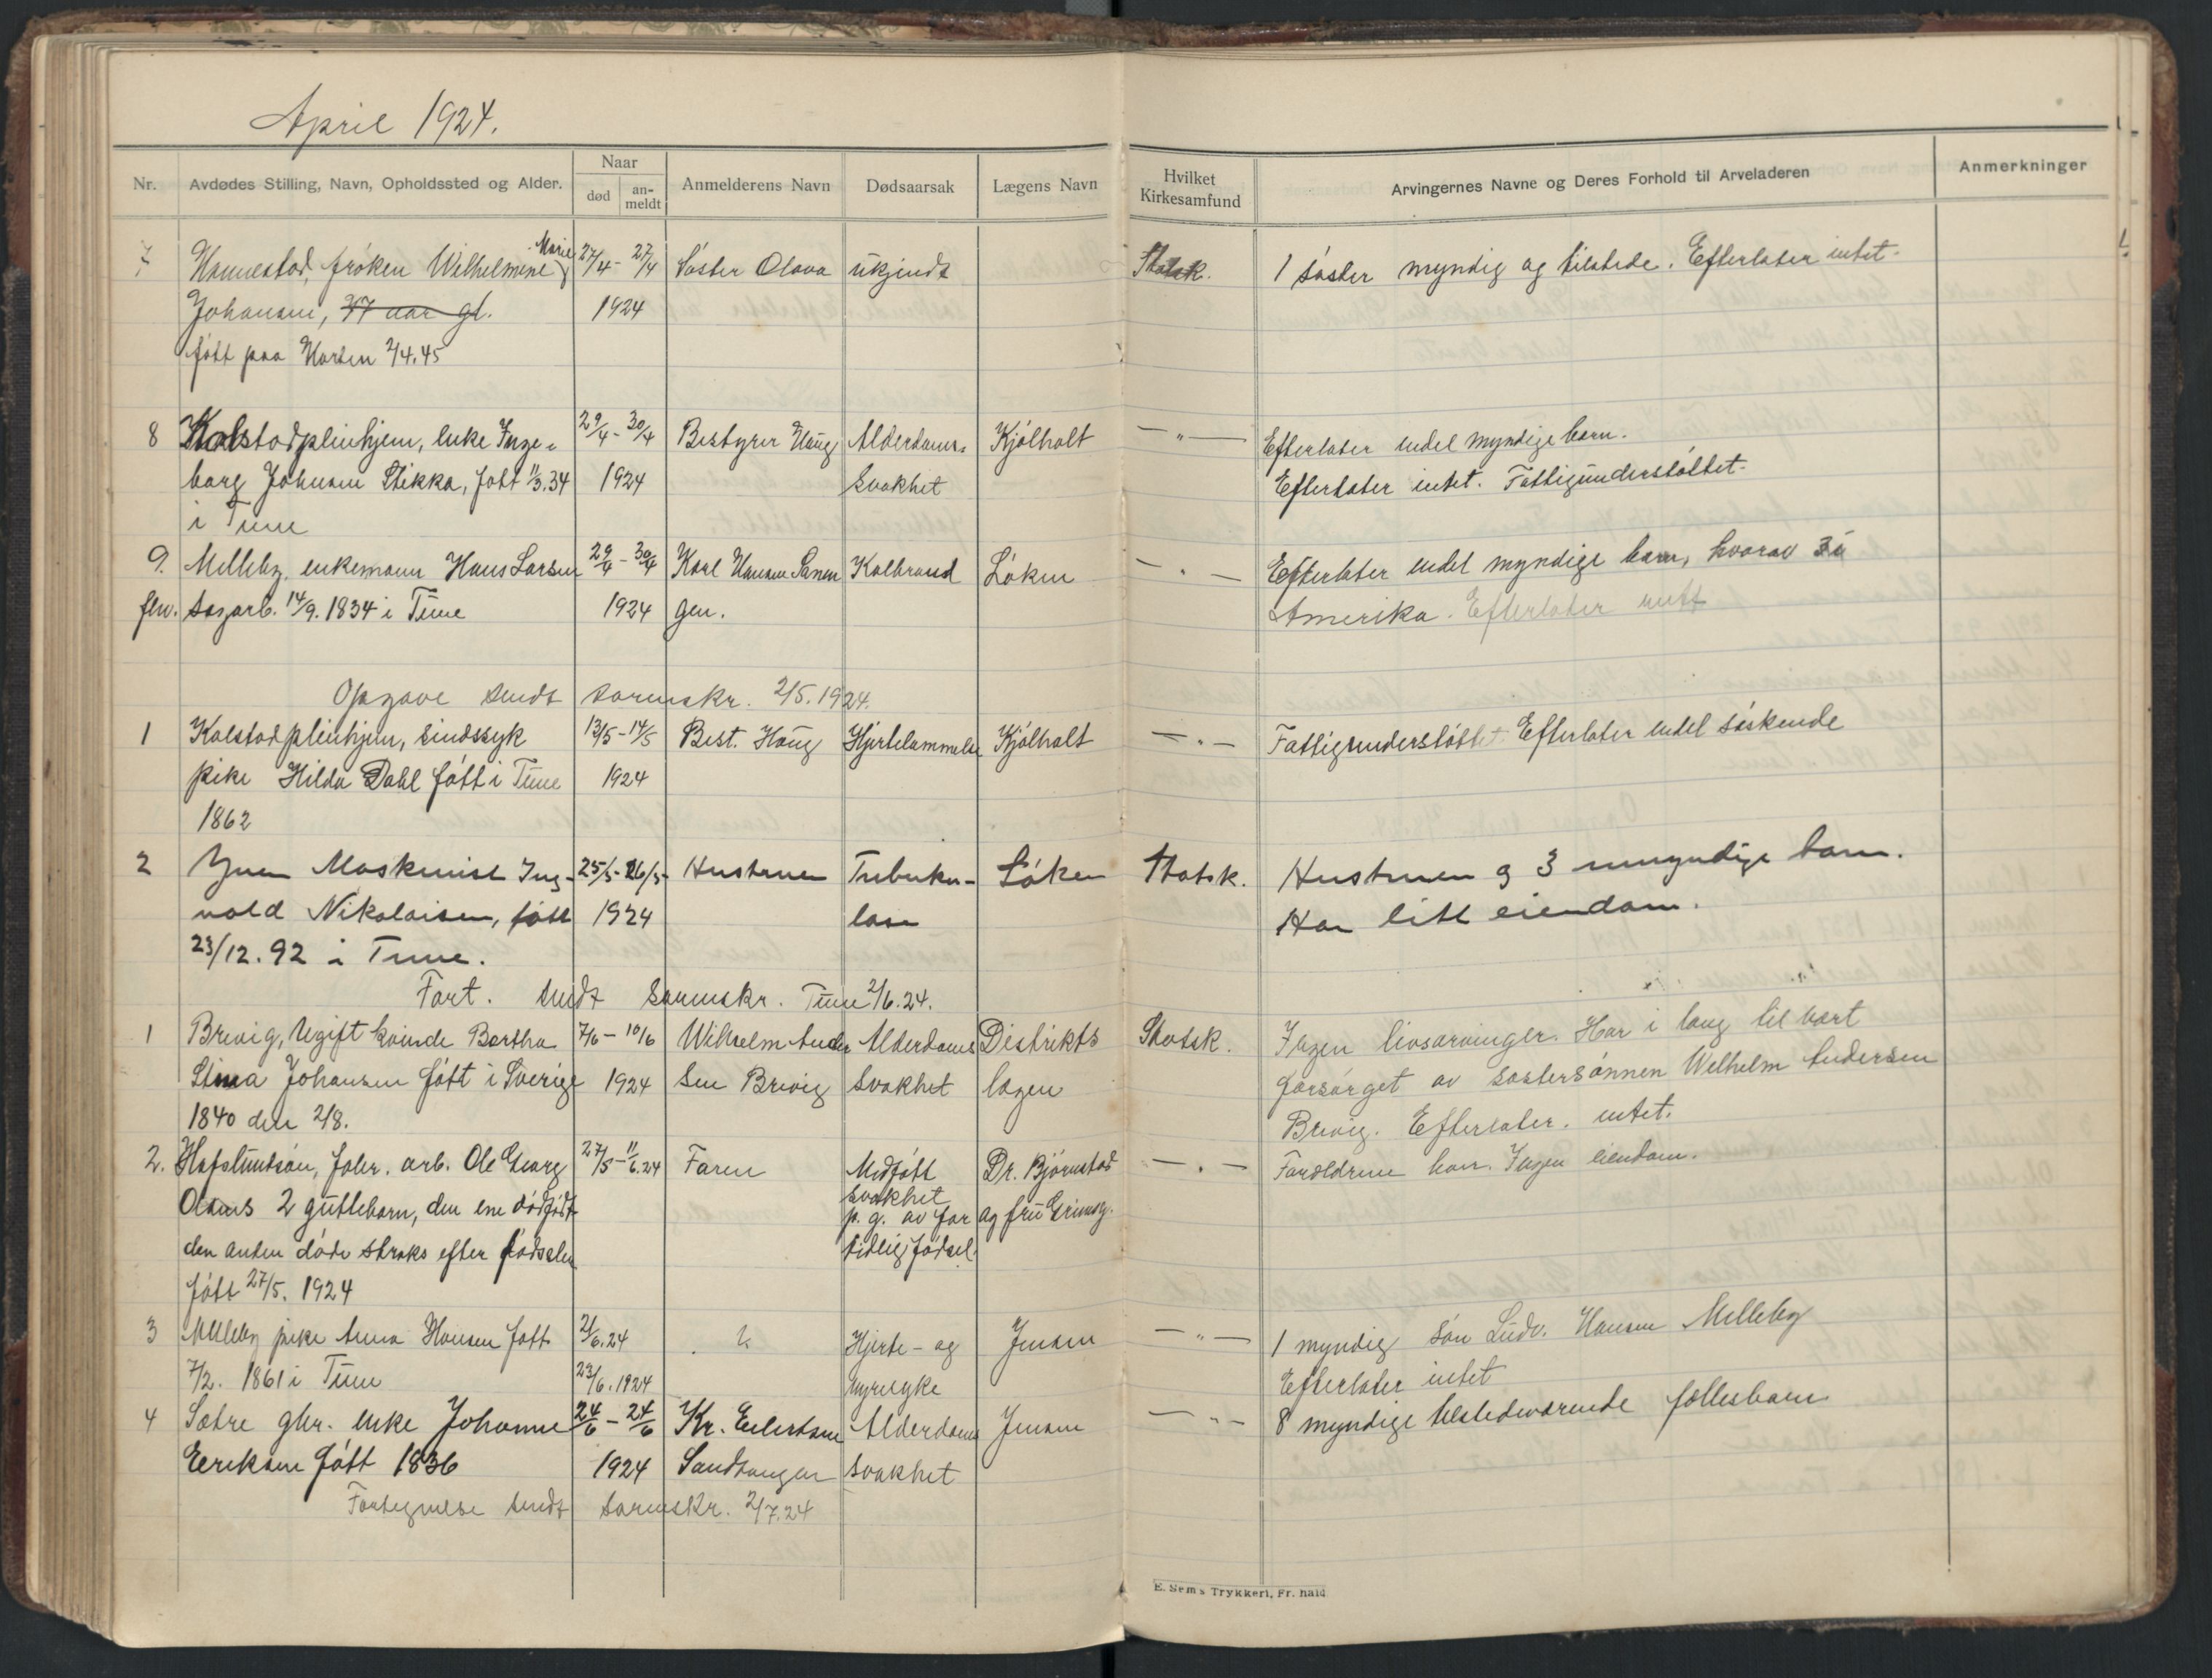 April 1924.
Nr. Avdødes Stilling, Navn, Opholdssted og Alder. Naar død an-meldt Anmelderens Navn Dødsaarsak Lægens Navn Hvilket Kirkesamfund Arvingernes Navne og Deres Forhold til Arveladeren Anmerkninger
7 Hannestad, frøken Wilhelmine Marie 27/4 - 27/4 Søster Olava ukjendt Statsk. 1 søster myndig og tilstede. Efterlater intet.
Johansen, 47 aar gl. 1924
født paa Horten 2/4.45
8 Kalstadpleiehjem, enke Inge- 29/4 - 30/4 Bestyrer Haug Alderdoms- Kjølholt — " — Efterlater endel myndige barn.
borg Johnsen Stikka, født 11/3.34 1924 svakhet Efterlater intet. Fattigunderstøttet.
i Tune
9. Melleby, enkemann Hans Larsen 29/4 - 30/4 Karl Hansen Sannen Kolbrand Løken — " — Efterlater endel myndige barn, hvorav 3 i
flw. sagarb. 14/9. 1834 i Tune 1924 gen. Amerika. Efterlater intet
Opgave sendt sorenskr. 2/5.1924.
1 Kalstadpleiehjem, sindssyk 13/5 - 14/5 Best. Haug Hjertelammelse Kjølholt — " — Fattigunderstøttet Efterlater endel søskende
pike Hilda Dahl født i Tune 1924
1862
2 Yven Maskinist Ing- 25/5 - 26/5 Hustruen Tuberku- Løken Statsk. Hustruen og 3 umyndige barn.
vald Nikolaisen, født 1924 lose Har litt eiendom.
23/12.92 i Tune.
Fort. sendt sorenskr. Tune 2/6.24.
1 Brevig, Ugift kvinde Bertha 7/6 - 10/6 Wilhelm Ander Alderdoms Distrikts Statsk. Ingen livsarvinger. Har i lang tid vært
Stina Johansen født i Sverige 1924 sen Brevig svakhet lægen forsørget av søstersønnen Wilhelm Andersen
1840 den 2/8. Brevig. Efterlater. intet.
2. Hafslundsøen, fabr. arb. Ole Georg 27/5 - 11/6.24 Faren Medfødt Dr. Bjørnstad — " — Foreldrene har. Ingen eiendom.
Olsens 2 guttebarn, den ene dødfødt svakhet
p. g. av for og fru Grimsg.
den anden døde straks efter fødselen tidlig fødsel.
født 27/5. 1924
3 Melleby pike Anna Hansen født 21/6.24 Hjerte- og Jensen — " — 1 myndig søn Ludv. Hansen Melleby
7/2. 1861 i Tune 23/6.1924 nyresyke Efterlater intet
4 Sætre gbr. enke Johanne 24/6 - 24/6 Kr. Eilertsen Alderdoms Jensen — " — 8 myndige tilstedeværende fællesbarn
Eriksen født 1836 1924 Sandtangen svakhet
Fortegnelse sendt sorenskr. 2/7.24
E. Sem's Trykkeri, Fr.hald